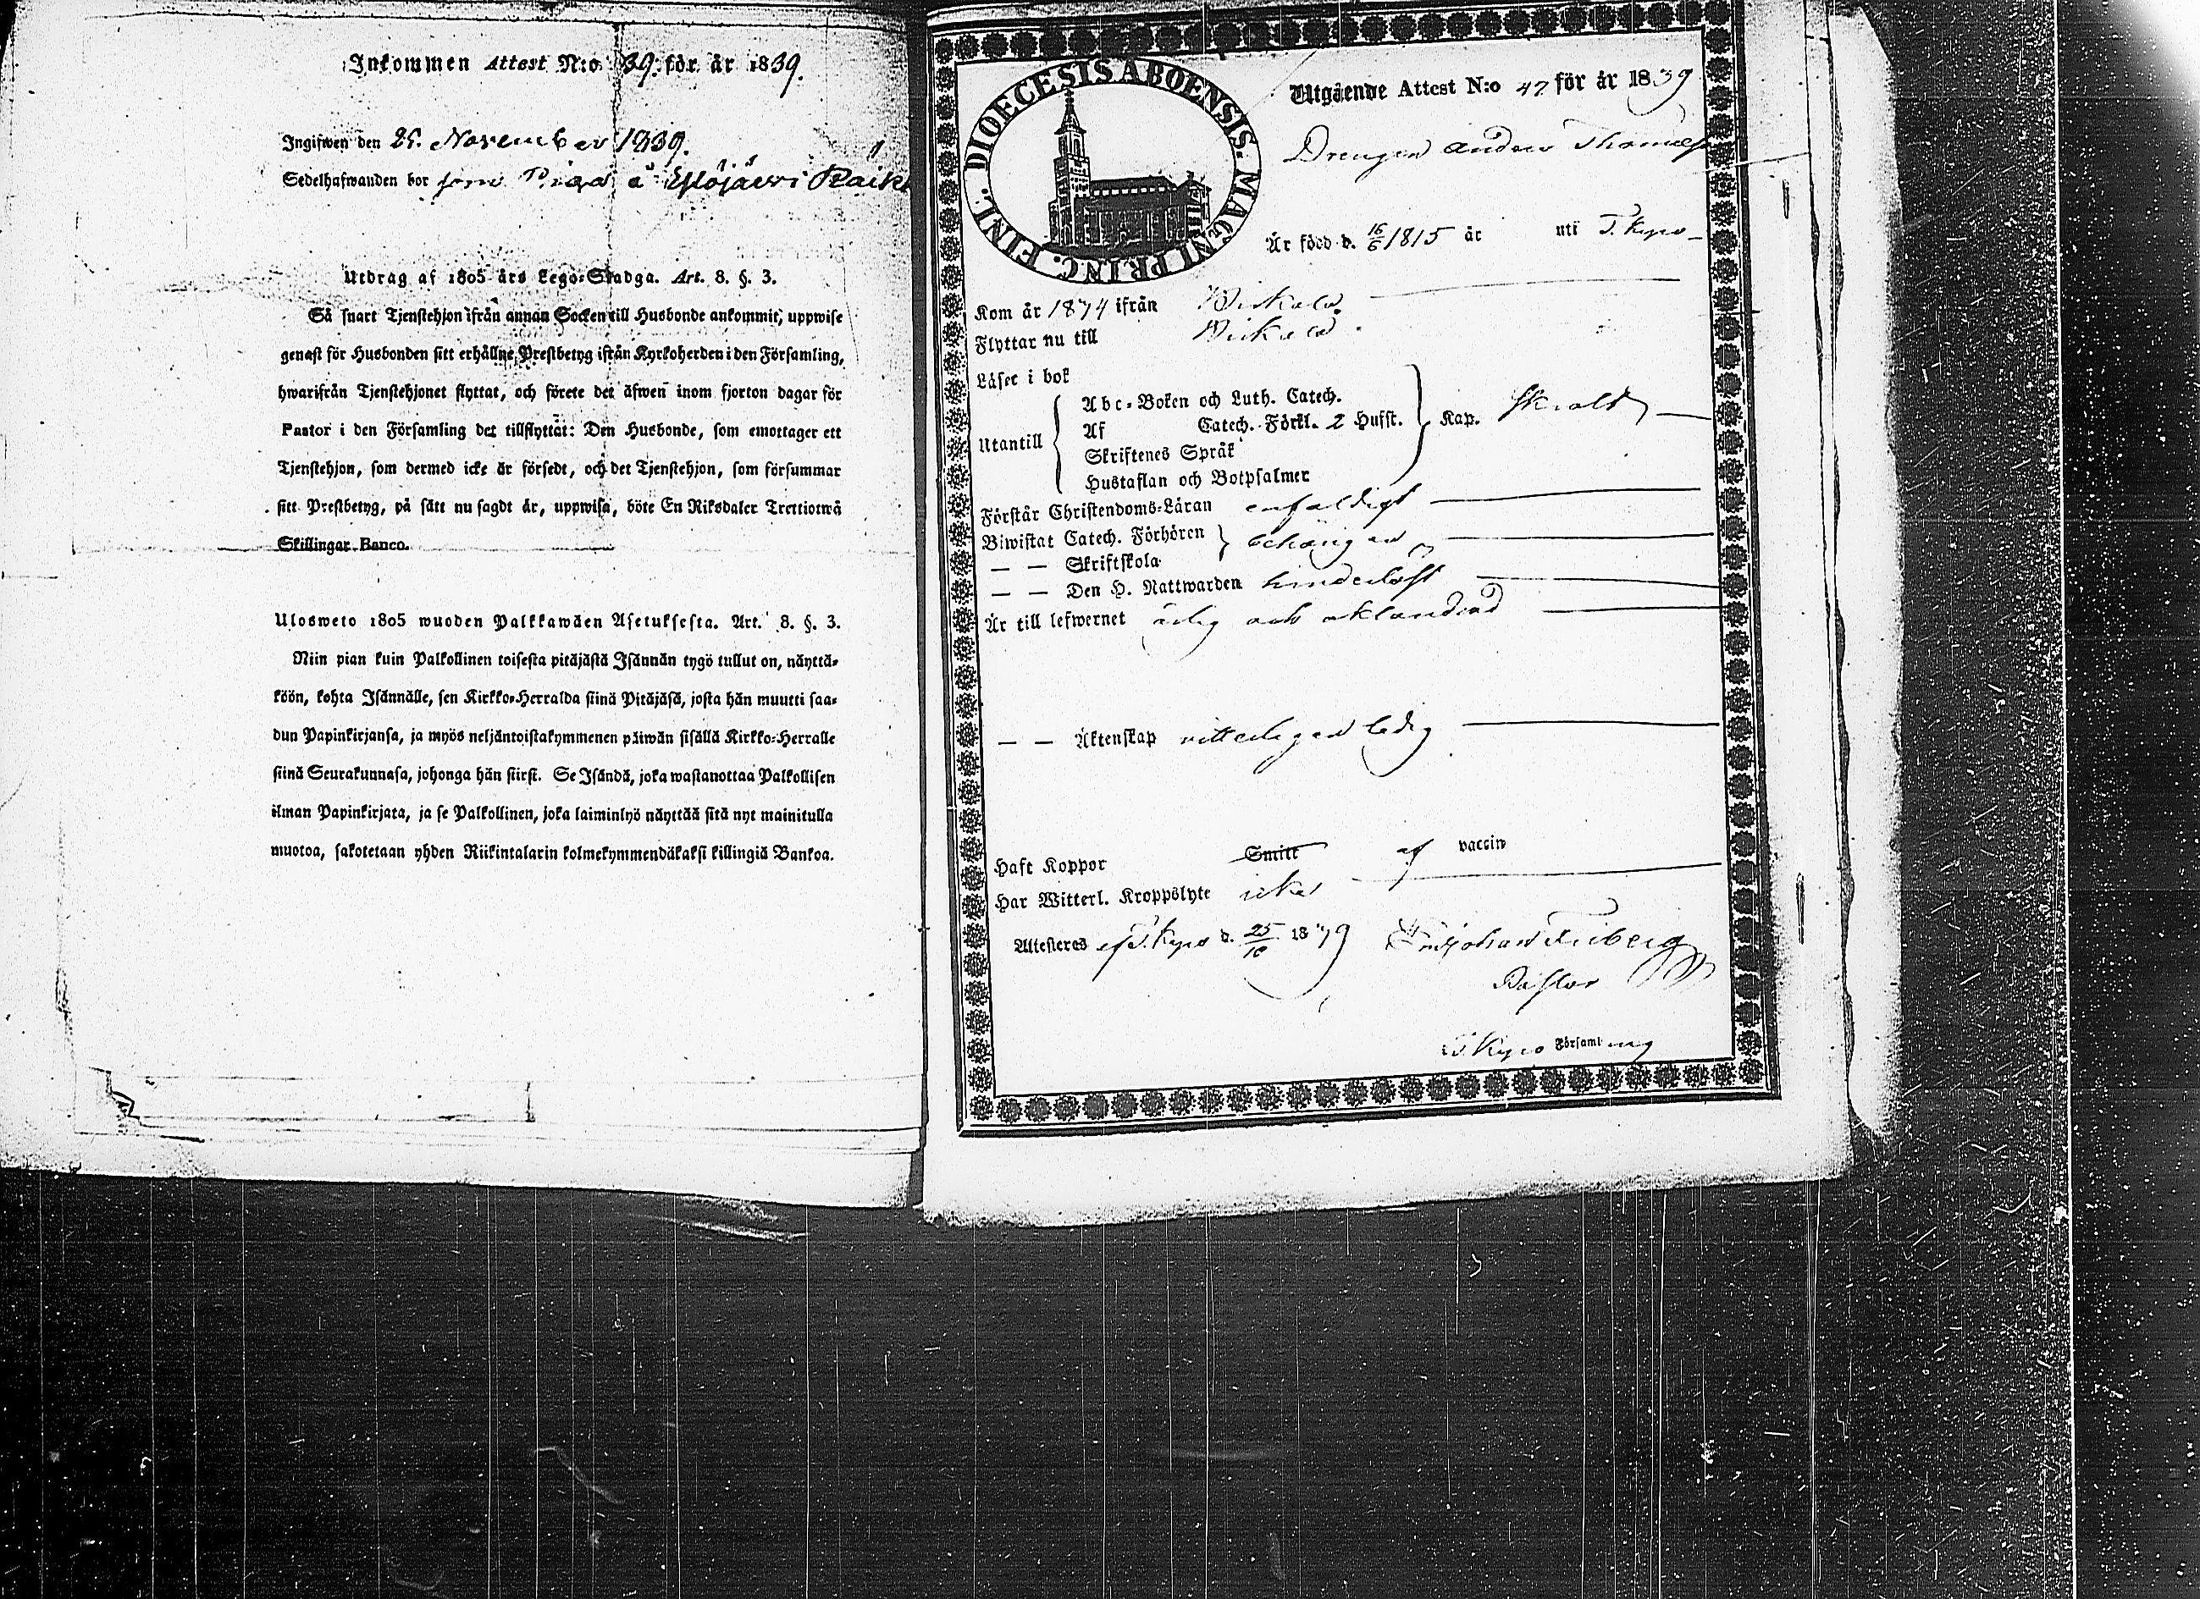 Inkommen Attest N:o 39. för år 1839.
Ingifwen den 25. November 1839.
Sedelhafwanden bor som Piga å Ylöjärvi Räik
Utdrag af 1805 års Lego-Stadga. Art. 8. §. 3.
Så snart Tjenstehjon ifrån annan Socken till Husbonde ankommit, uppwise
genast för Husbonden sitt erhållne Prestbetyg ifrån Kyrkoherden i den Församling,
hwarifrån Tjenstehjonet flyttat, och förete det äfwen inom fjorton dagar för
Pastor i den Församling det tillflyttat: Den Husbonde, som emottager ett
Tjenstehjon, som dermed icke är försedt, och det Tjenstehjon, som försummar
sitt Prestbetyg, på sätt nu sagdt är, uppwisa, böte En Riksdaler Trettiotwå
Skillingar Banco.
Ulosweto 1805 wuoden Palkkawäen Asetuksesta. Art. 8. §. 3.
Niin pian kuin Palkollinen toisesta pitäjästä Isännän tygö tullut on, näyttä-
köön, kohta Isännälle, sen Kirkko-Herralda siinä Pitäjäsä, josta hän muutti saa-
dun Papinkirjansa, ja myös neljäntoistakymmenen päiwän sisällä Kirkko-Herralle
siinä Seurakunnasa, johonga hän siirsi. Se Isändä, joka wastanottaa Palkollisen
ilman Papinkirjata, ja se Palkollinen, joka laiminlyö näyttää sitä nyt mainitulla
muotoa, sakotetaan yhden Riikintalarin kolmekymmendäkaksi killingiä Bankoa.
DIOECESIS ABOENSIS. MAGNI PRINC. FINL.
Utgående Attest N:o 47 för år 1839
Drengen Anders Thomass
Är född d. 16/6 1815 är uti T. Kyro
Kom år 1834 ifrån
Flyttar nu till
Läser i bok
Utantill
Abc-Boken och Luth. Catech.
Af Catech. Förkl. 2 Hufst. Kap.
Skriftenes Språk
Hustaflan och Botpsalmer
Förstår Christendoms-Läran enfaldigt
Biwistat Catech. Förhören
— — Skriftskola
— — Den H. Nattwarden hinderlöst
Är till lefwernet ärlig och oklandrad
— — Äktenskap vitterligen ledig
Haft Koppor Smitt af vaccin
Har Witterl. Kroppslyte icke
Attesteras af T. Kyro d. 25/10 1839 Johan Friberg
Pastor
T. Kyro Församling